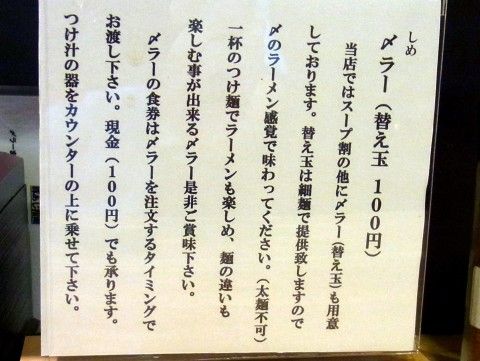 しめ
〆ラー（替え玉 100円）
当店ではスープ割の他に〆ラー（替え玉）も用意
しております。替え玉は細麺で提供致しますので
〆のラーメン感覚で味わってください。（太麺不可）
一杯のつけ麺でラーメンも楽しめ、麺の違いも
楽しむ事が出来る〆ラー是非ご賞味下さい。
〆ラーの食券は〆ラーを注文するタイミングで
お渡し下さい。現金（100円）でも承ります。
つけ汁の器をカウンターの上に乗せて下さい。